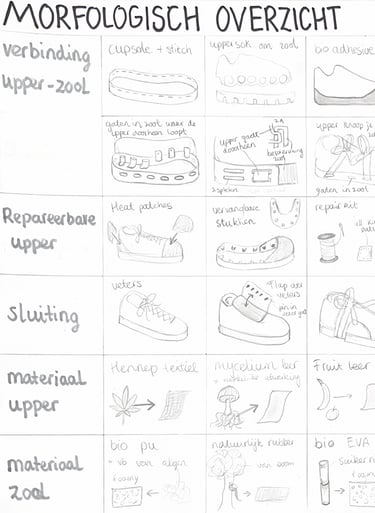 MORFOLOGISCH OVERZICHT
verbinding
upper-zool
cupsole + stitch
uppersok om zool
bio adhesive
gaten in zool waar de
upper doorheen loopt
upper gaat
doorheen
bevestiging
zool
upper knoop je
gaten in zool
Repareerbare
upper
Heat patches
vervangbare
stukken
repair kit
Sluiting
veters
Flap over
veters
materiaal
upper
Hennep textiel
mycelium leer
Fruit leer
materiaal
zool
bio pu
vb van algen
foamy
natuurlijk rubber
van boom
bio EVA
suiker
foamy